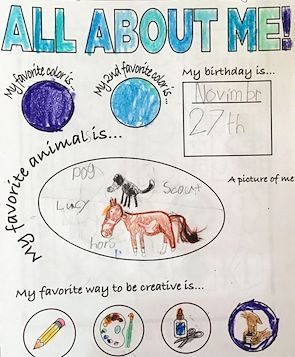 ALL ABOUT ME!
My favorite color is...
My 2nd favorite color is...
My birthday is...
Novimbr
27th
My favorite animal is...
pog
Scout
Lucy
hors
A picture of me
My favorite way to be creative is...